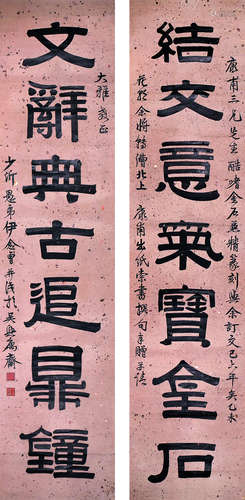 結交意氣寶金石
康甫三兄先生酷嗜金石兼精篆刻與余訂交已六年矣乙未
春余將轉漕北上康甫出紙索書撰句奉贈并請
大雅教正
文辭典古追鼎鐘
少沂愚弟伊念曾并識於吳興寓齋